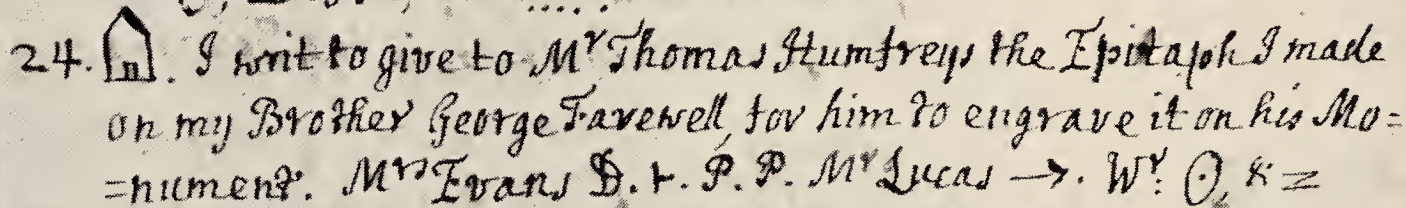 24. I writ to give to Mr Thomas Humfreys the Epitaph I made
on my Brother George Farewell, for him to engrave it on his Mo=
=nument. Mrs Evans D. t. P. P. Mr Lucas →. Wr. ☉,